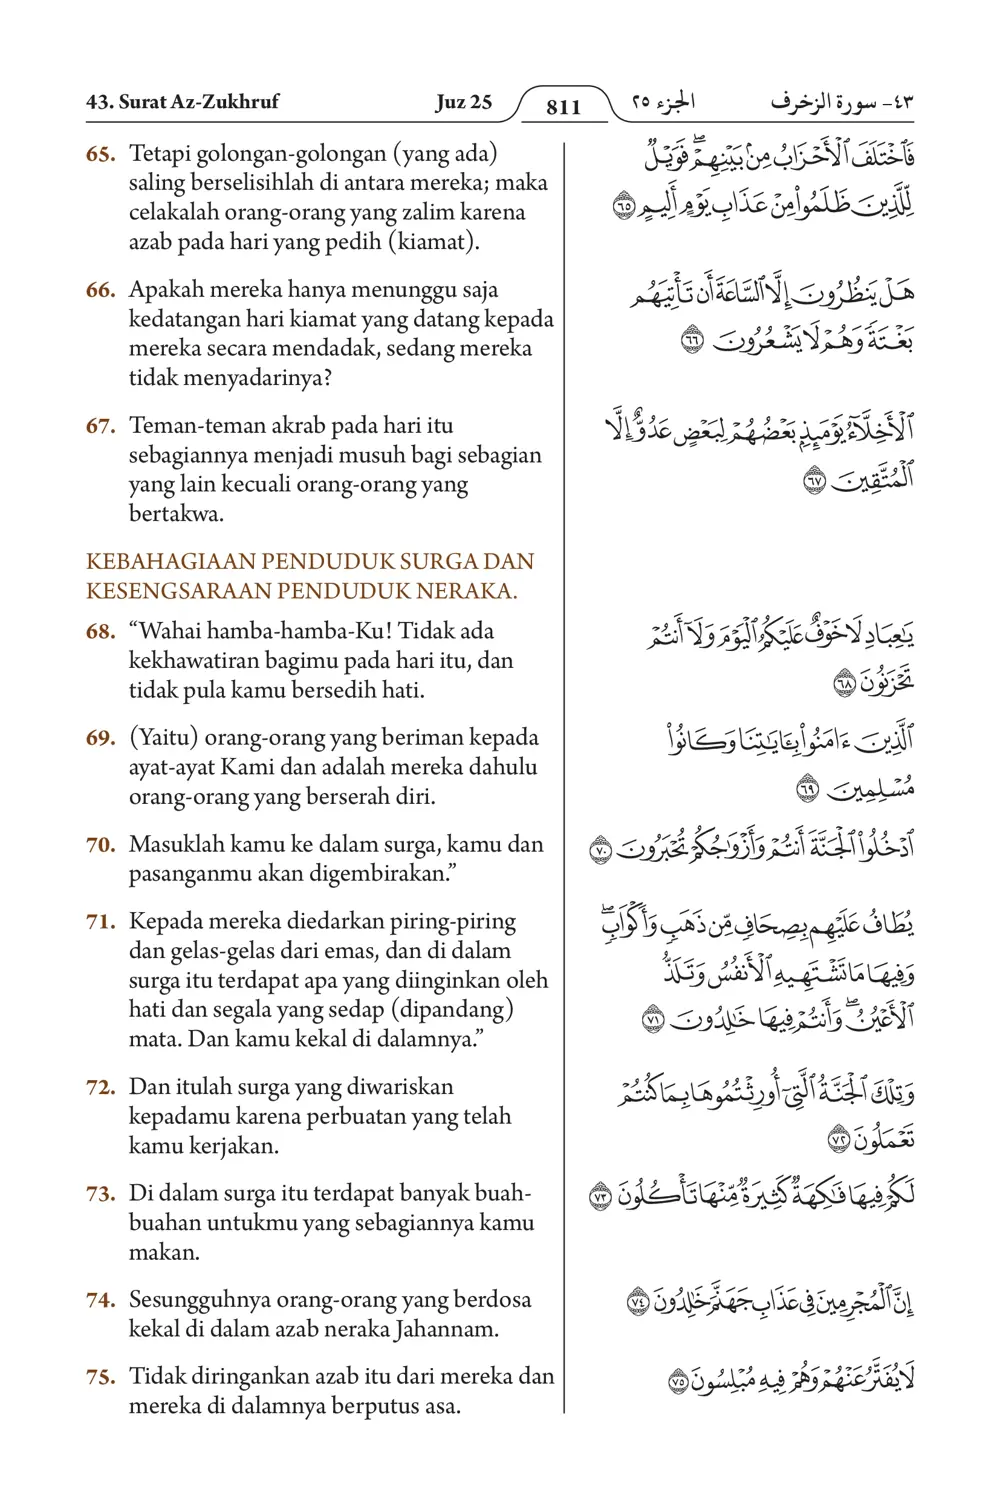 43. Surat Az-Zukhruf Juz 25 811 الجزء ٢٥ ٤٣- سورة الزخرف
65. Tetapi golongan-golongan (yang ada)
saling berselisihlah di antara mereka; maka
celakalah orang-orang yang zalim karena
azab pada hari yang pedih (kiamat).
فَٱخْتَلَفَ ٱلْأَحْزَابُ مِنۢ بَيْنِهِمْ ۖ فَوَيْلٌ
لِّلَّذِينَ ظَلَمُوا۟ مِنْ عَذَابِ يَوْمٍ أَلِيمٍ ٦٥
66. Apakah mereka hanya menunggu saja
kedatangan hari kiamat yang datang kepada
mereka secara mendadak, sedang mereka
tidak menyadarinya?
هَلْ يَنظُرُونَ إِلَّا ٱلسَّاعَةَ أَن تَأْتِيَهُم
بَغْتَةً وَهُمْ لَا يَشْعُرُونَ ٦٦
67. Teman-teman akrab pada hari itu
sebagiannya menjadi musuh bagi sebagian
yang lain kecuali orang-orang yang
bertakwa.
ٱلْأَخِلَّآءُ يَوْمَئِذٍۭ بَعْضُهُمْ لِبَعْضٍ عَدُوٌّ إِلَّا
ٱلْمُتَّقِينَ ٦٧
KEBAHAGIAAN PENDUDUK SURGA DAN
KESENGSARAAN PENDUDUK NERAKA.
68. “Wahai hamba-hamba-Ku! Tidak ada
kekhawatiran bagimu pada hari itu, dan
tidak pula kamu bersedih hati.
يَـٰعِبَادِ لَا خَوْفٌ عَلَيْكُمُ ٱلْيَوْمَ وَلَآ أَنتُمْ
تَحْزَنُونَ ٦٨
69. (Yaitu) orang-orang yang beriman kepada
ayat-ayat Kami dan adalah mereka dahulu
orang-orang yang berserah diri.
ٱلَّذِينَ ءَامَنُوا۟ بِـَٔايَـٰتِنَا وَكَانُوا۟
مُسْلِمِينَ ٦٩
70. Masuklah kamu ke dalam surga, kamu dan
pasanganmu akan digembirakan.”
ٱدْخُلُوا۟ ٱلْجَنَّةَ أَنتُمْ وَأَزْوَٰجُكُمْ تُحْبَرُونَ ٧٠
71. Kepada mereka diedarkan piring-piring
dan gelas-gelas dari emas, dan di dalam
surga itu terdapat apa yang diinginkan oleh
hati dan segala yang sedap (dipandang)
mata. Dan kamu kekal di dalamnya.”
يُطَافُ عَلَيْهِم بِصِحَافٍ مِّن ذَهَبٍ وَأَكْوَابٍ ۖ
وَفِيهَا مَا تَشْتَهِيهِ ٱلْأَنفُسُ وَتَلَذُّ
ٱلْأَعْيُنُ ۖ وَأَنتُمْ فِيهَا خَـٰلِدُونَ ٧١
72. Dan itulah surga yang diwariskan
kepadamu karena perbuatan yang telah
kamu kerjakan.
وَتِلْكَ ٱلْجَنَّةُ ٱلَّتِىٓ أُورِثْتُمُوهَا بِمَا كُنتُمْ
تَعْمَلُونَ ٧٢
73. Di dalam surga itu terdapat banyak buah-
buahan untukmu yang sebagiannya kamu
makan.
لَكُمْ فِيهَا فَـٰكِهَةٌ كَثِيرَةٌ مِّنْهَا تَأْكُلُونَ ٧٣
74. Sesungguhnya orang-orang yang berdosa
kekal di dalam azab neraka Jahannam.
إِنَّ ٱلْمُجْرِمِينَ فِى عَذَابِ جَهَنَّمَ خَـٰلِدُونَ ٧٤
75. Tidak diringankan azab itu dari mereka dan
mereka di dalamnya berputus asa.
لَا يُفَتَّرُ عَنْهُمْ وَهُمْ فِيهِ مُبْلِسُونَ ٧٥